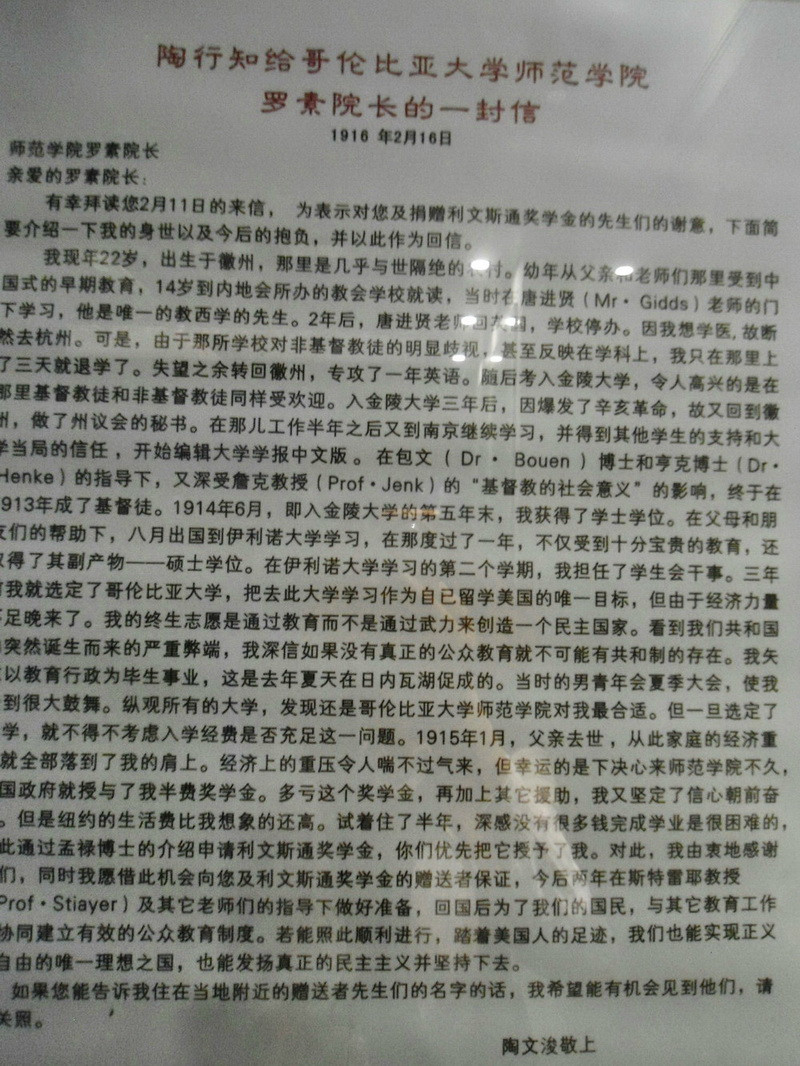 陶行知给哥伦比亚大学师范学院
罗素院长的一封信
1916 年2月16日
师范学院罗素院长
亲爱的罗素院长:
有幸拜读您2月11日的来信， 为表示对您及捐赠利文斯通奖学金的先生们的谢意，下面简
要介绍一下我的身世以及今后的抱负，并以此作为回信。
我现年22岁，出生于徽州，那里是几乎与世隔绝的村。幼年从父亲和老师们那里受到中
国式的早期教育，14岁到内地会所办的教会学校就读，当时在唐进贤（Mr·Gidds）老师的门
下学习，他是唯一的教西学的先生。2年后，唐进贤老师回国，学校停办。因我想学医,故断
然去杭州。可是，由于那所学校对非基督教徒的明显歧视，甚至反映在学科上，我只在那里上
了三天就退学了。失望之余转回徽州，专攻了一年英语。随后考入金陵大学，令人高兴的是在
那里基督教徒和非基督教徒同样受欢迎。入金陵大学三年后，因爆发了辛亥革命，故又回到徽
州，做了州议会的秘书。在那儿工作半年之后又到南京继续学习，并得到其他学生的支持和大
学当局的信任，开始编辑大学学报中文版。在包文（Dr·Bouen）博士和亨克博士（Dr·
Henke）的指导下，又深受詹克教授（Prof·Jenk）的“基督教的社会意义”的影响，终于在
1913年成了基督徒。1914年6月，即入金陵大学的第五年末，我获得了学士学位。在父母和朋
友们的帮助下，八月出国到伊利诺大学学习，在那度过了一年，不仅受到十分宝贵的教育，还
取得了其副产物——硕士学位。在伊利诺大学学习的第二个学期，我担任了学生会干事。三年
前我就选定了哥伦比亚大学，把去此大学学习作为自已留学美国的唯一目标，但由于经济力量
不足晚来了。我的终生志愿是通过教育而不是通过武力来创造一个民主国家。看到我们共和国
突然诞生而来的严重弊端，我深信如果没有真正的公众教育就不可能有共和制的存在。我矢
以教育行政为毕生事业，这是去年夏天在日内瓦湖促成的。当时的男青年会夏季大会，使我
到很大鼓舞。纵观所有的大学，发现还是哥伦比亚大学师范学院对我最合适。但一旦选定了
学，就不得不考虑入学经费是否充足这一问题。1915年1月，父亲去世，从此家庭的经济重
就全部落到了我的肩上。经济上的重压令人喘不过气来，但幸运的是下决心来师范学院不久，
国政府就授与了我半费奖学金。多亏这个奖学金，再加上其它援助，我又坚定了信心朝前奋
。但是纽约的生活费比我想象的还高。试着住了半年，深感没有很多钱完成学业是很困难的，
此通过孟禄博士的介绍申请利文斯通奖学金，你们优先把它授予了我。对此，我由衷地感谢
们，同时我愿借此机会向您及利文斯通奖学金的赠送者保证，今后两年在斯特雷耶教授
Prof·Stiayer）及其它老师们的指导下做好准备，回国后为了我们的国民，与其它教育工作
协同建立有效的公众教育制度。若能照此顺利进行，踏着美国人的足迹，我们也能实现正义
自由的唯一理想之国，也能发扬真正的民主主义并坚持下去。
如果您能告诉我住在当地附近的赠送者先生们的名字的话，我希望能有机会见到他们，请
关照。
陶文浚敬上